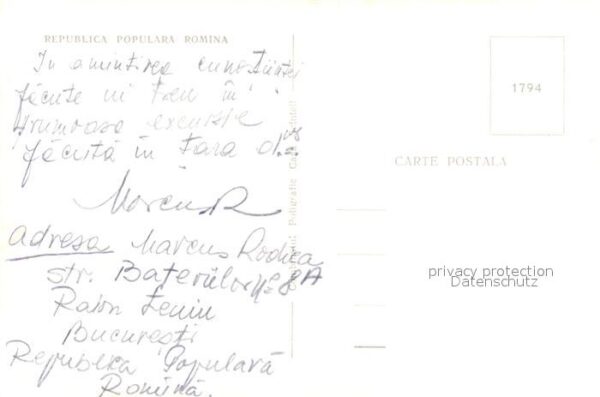 REPUBLICA POPULARA ROMINA
In amintirea cunoștiinței
făcute în tren în
frumoasa excursie
făcută în țara d.vs
Marcus R
adresa Marcus Rodica
str. Bateriilor № 8A
Raion Lenin
București
Republica Populară
Romînă.
1794
CARTE POSTALA
privacy protection
Datenschutz